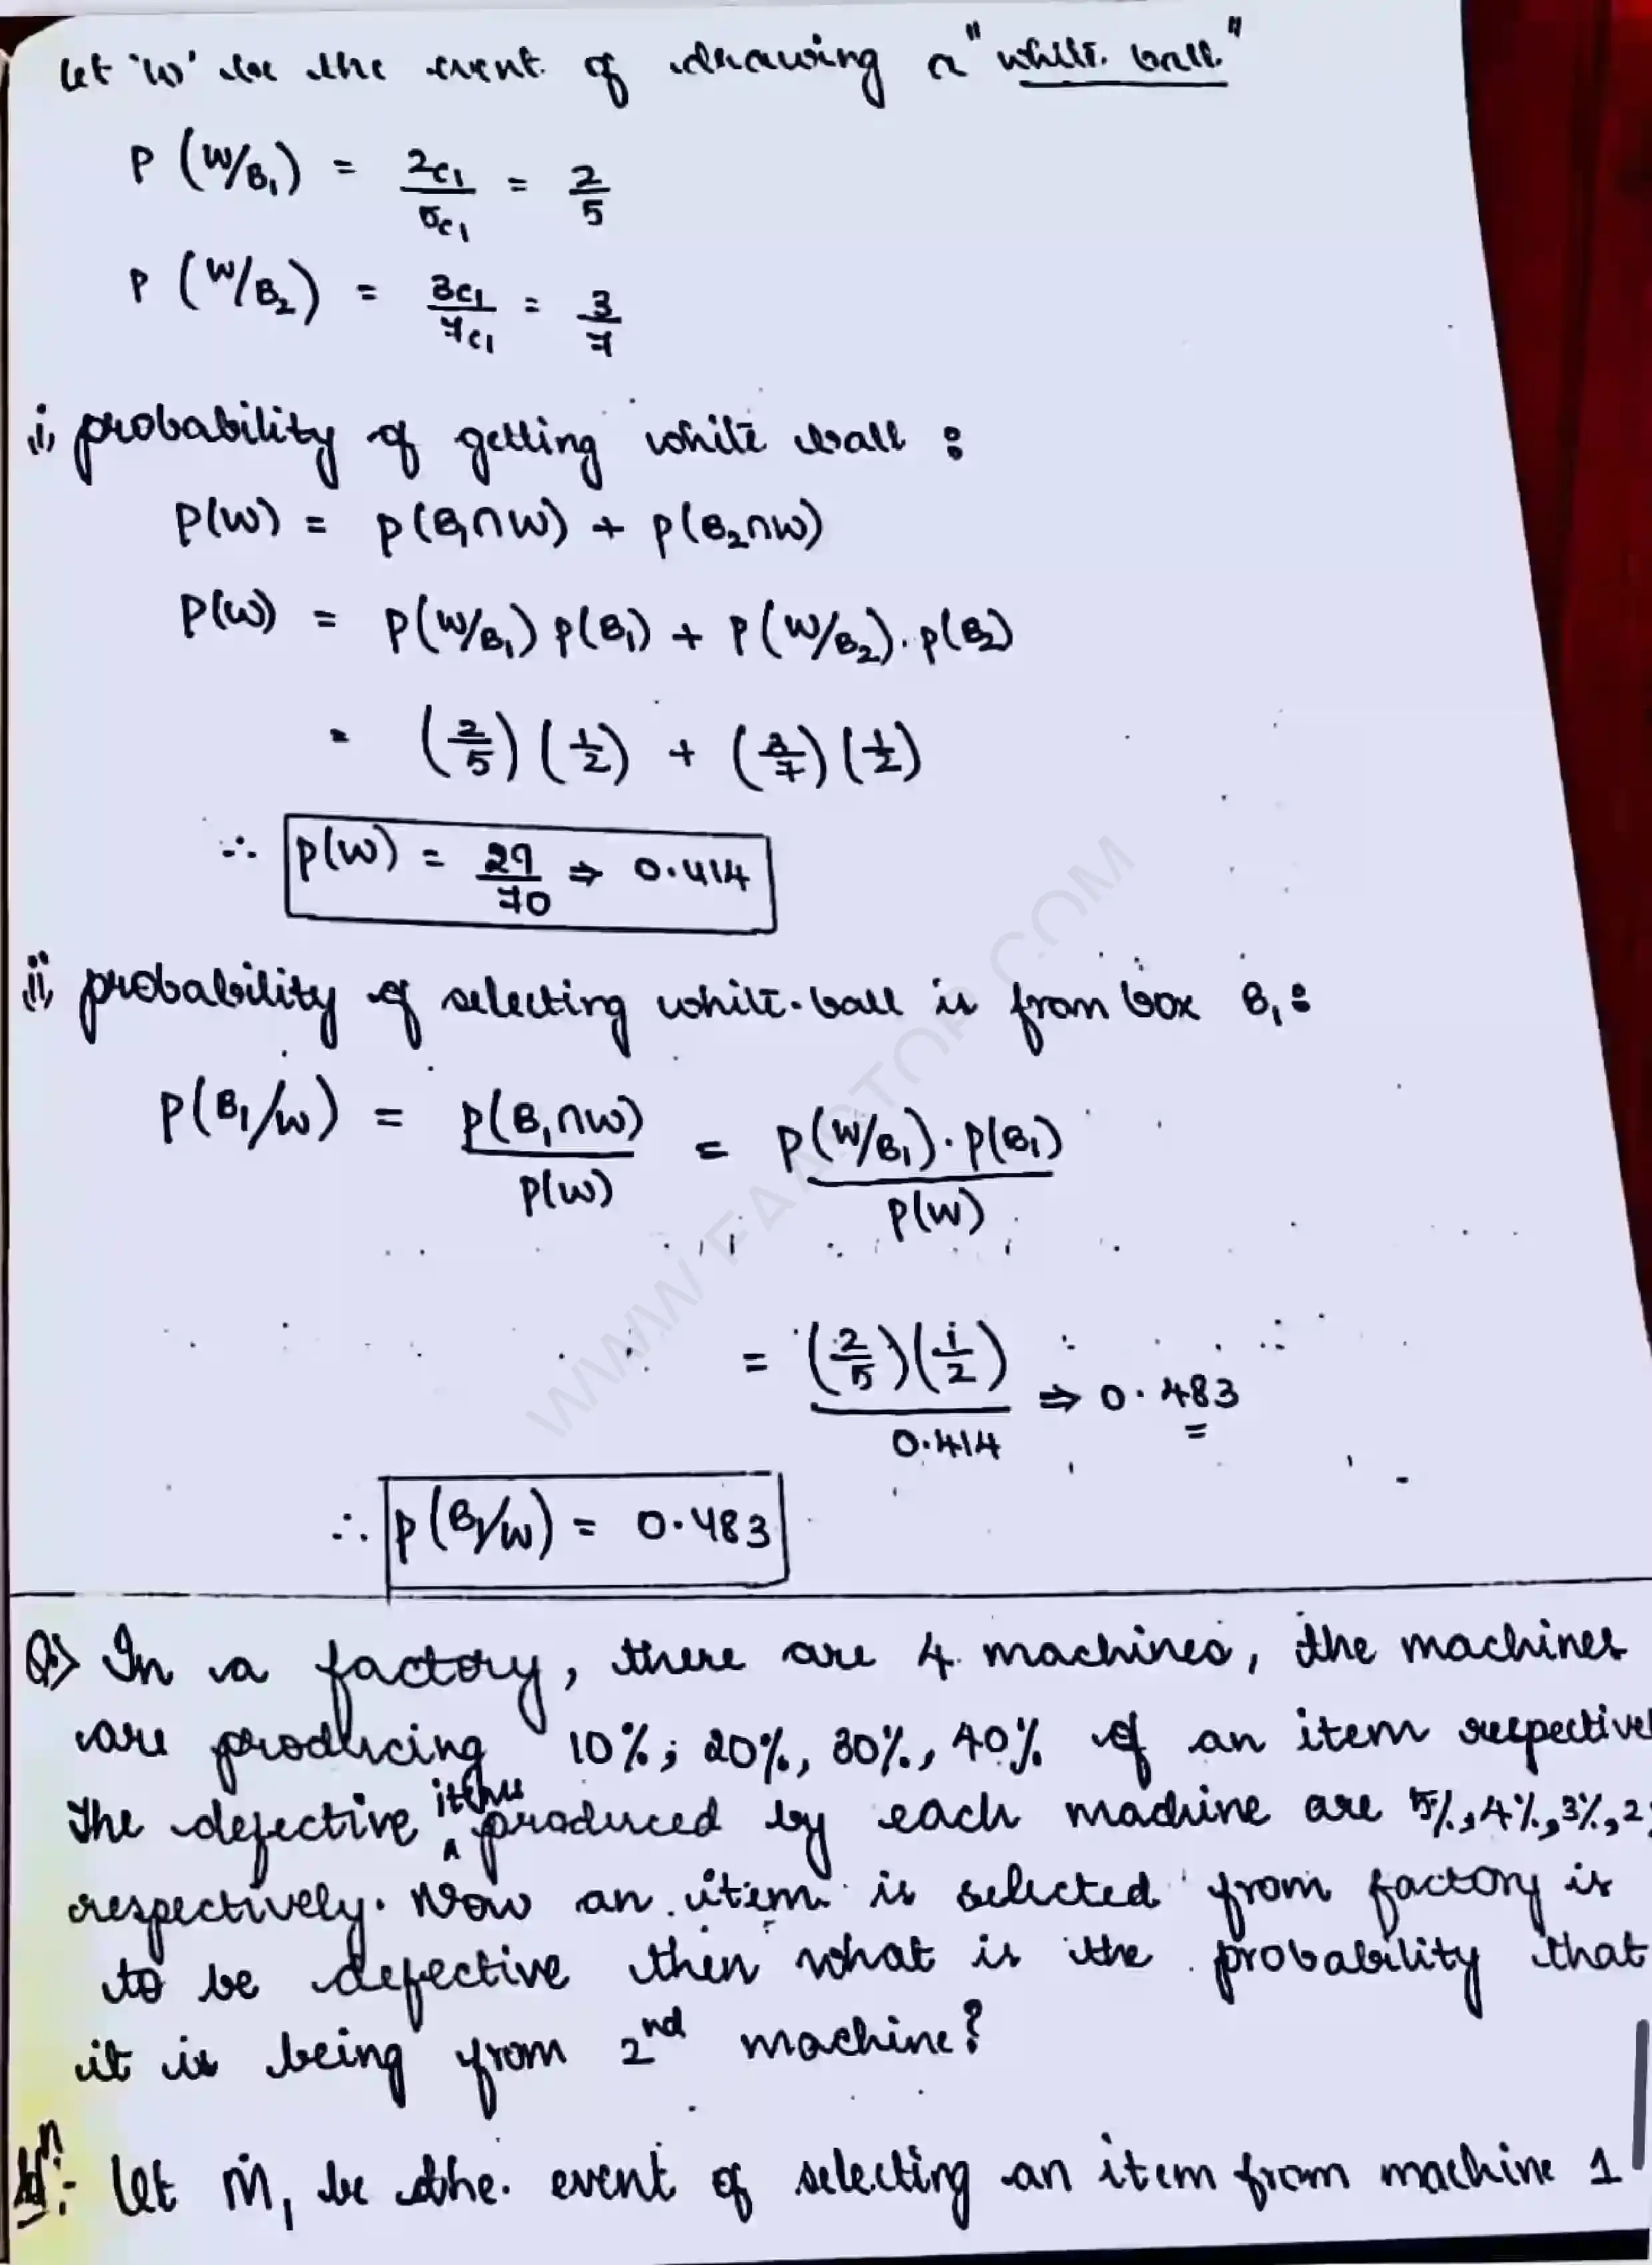 Let 'W' be the event of drawing a "white ball"
P (W/B₁) = 2c₁/5c₁ = 2/5
P (W/B₂) = 3c₁/7c₁ = 3/7
i, probability of getting white ball :
P(W) = P(B₁∩W) + P(B₂∩W)
P(W) = P(W/B₁) P(B₁) + P(W/B₂)·P(B₂)
= (2/5)(1/2) + (3/7)(1/2)
∴ P(W) = 29/70 ⇒ 0.414
ii, probability of selecting white ball is from box B₁ :
P(B₁/W) = P(B₁∩W)/P(W) = P(W/B₁)·P(B₁)/P(W)
= (2/5)(1/2)/0.414 ⇒ 0.483
∴ P(B₁/W) = 0.483
Q> In a factory, there are 4 machines, the machines
are producing 10%, 20%, 30%, 40% of an item respectivel
The defective items produced by each machine are 5%, 4%, 3%, 2
respectively. Now an item is selected from factory is
to be defective then what is the probability that
it is being from 2nd machine?
Let M₁ be the event of selecting an item from machine 1